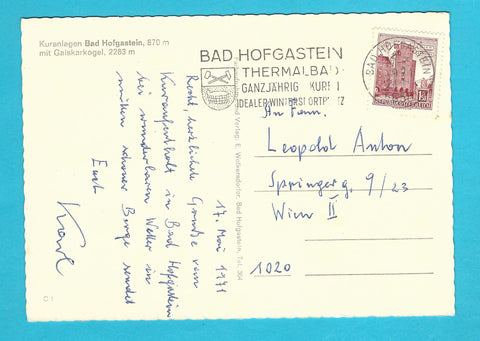 Kuranlagen Bad Hofgastein, 870 m
mit Gaiskarkogel, 2283 m
17. Mai 1971
Recht herzlichste Grüße vom
Kuraufenthalt in Bad Hofgastein
bei wunderbarem Wetter in
mitten schöner Berge sendet
Euch
Karl
C 1
BAD HOFGASTEIN
THERMALBAD
GANZJÄHRIG KUR
IDEALER WINTERSPORTPLATZ
BAD HOFGASTEIN
REPUBLIK ÖSTERREICH
Verlag E. Wolkersdorfer, Bad Hofgastein, Tel. 364
An Fam.
Leopold Anton
Springerg. 9/23
Wien II
1020